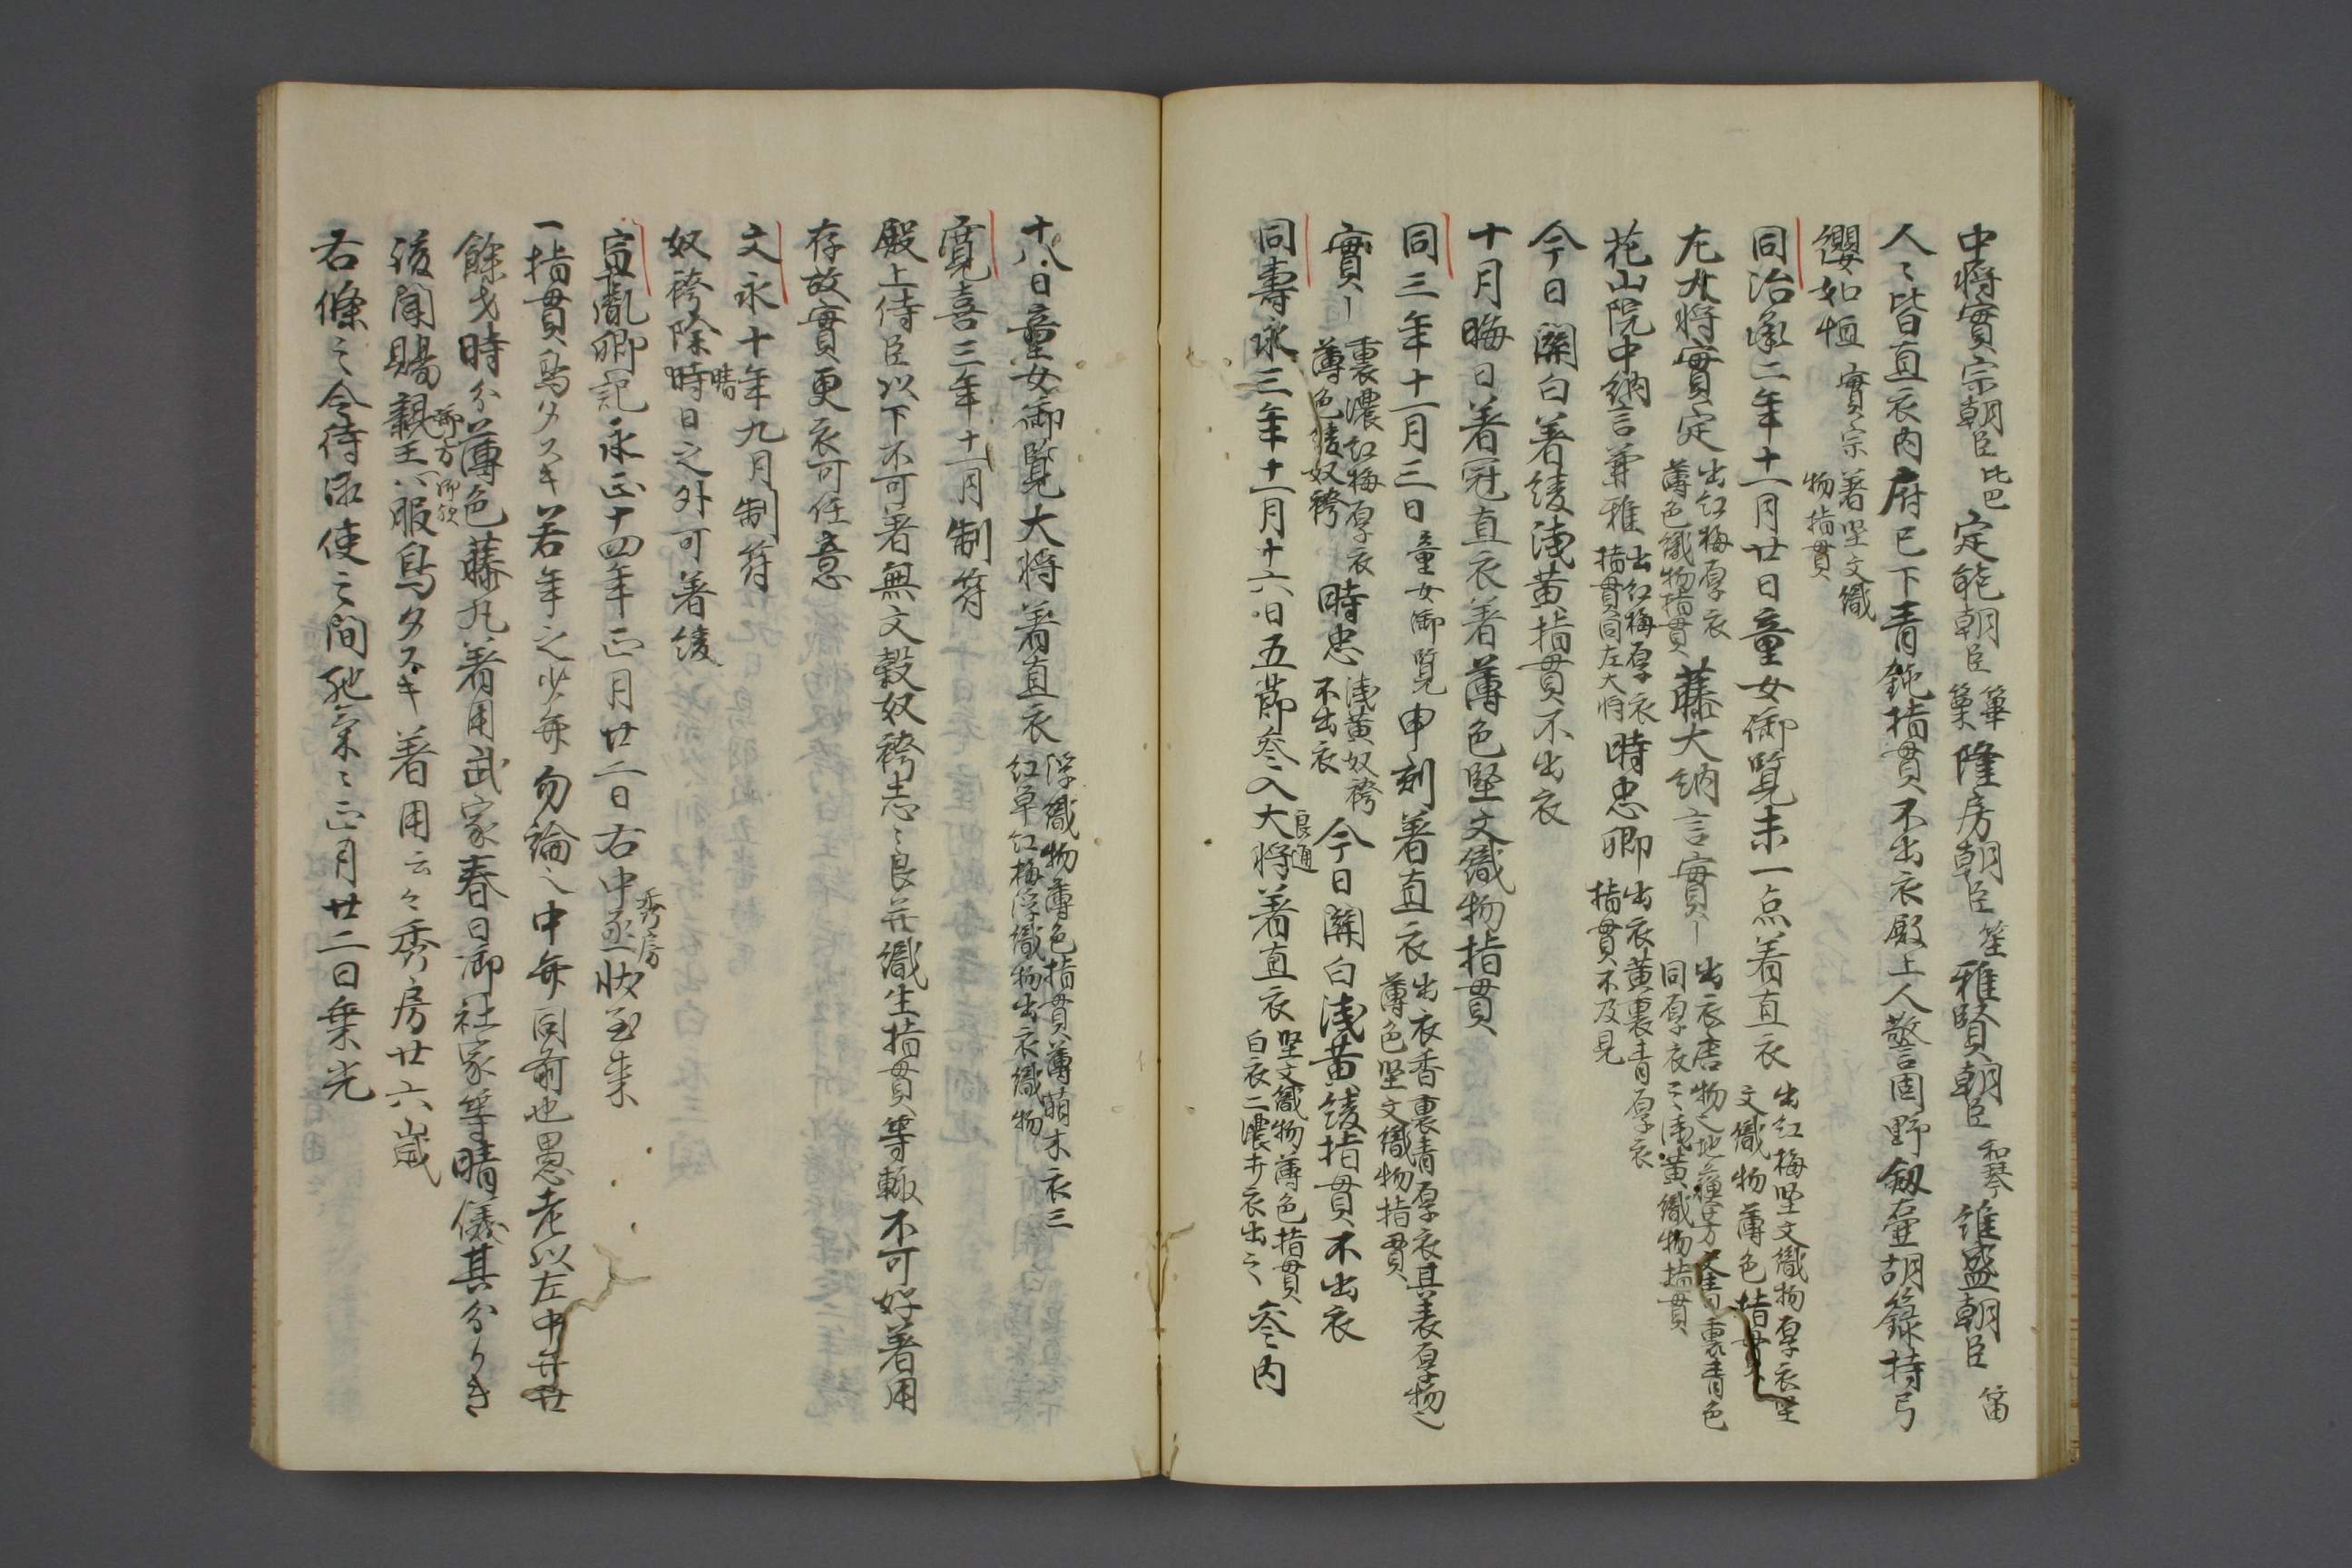 中将實宗朝臣比巴定能朝臣篳篥隆房朝臣笙雅賢朝臣和琴維盛朝臣笛
人々皆直衣内府已下青鈍指貫不出衣殿上人警固野劔壷胡籙持弓
纓如恒實宗著堅文織物指貫
同治承二年十一月廿日童女御覧未一点着直衣出紅梅堅文織物厚衣堅文織物薄色指貫
左大将實定出紅梅厚衣薄色織物指貫藤大納言實ー出衣唐物之地蘓芳裏青色同厚衣之浅黄織物指貫
花山院中納言兼雅出紅梅厚衣指貫同左大将時忠卿出衣黄裏青厚衣指貫不及見
今日關白着綾浅黄指貫不出衣
十月晦日着冠直衣着薄色堅文織物指貫
同三年十一月三日童女御覧申刻着直衣出衣香裏青厚衣其表厚物也薄色堅文織物指貫
實ー裏濃紅梅厚衣薄色綾奴袴時忠浅黄奴袴不出衣今日關白浅黄綾指貫不出衣
同壽永三年十一月十六日五節参入大将良通着直衣堅文織物薄色指貫白衣二濃打衣出之参内
十八日童女御覧大将着直衣浮織物薄色指貫薄萌木衣三紅単紅梅浮織物出衣織物
寛喜三年十一月制符
殿上侍臣以下不可著無文縠奴袴志々良并織生指貫等輙不可好著用
存故實更衣可任意
文永十年九月制符
奴袴除晴時日之外可着綾
宣胤卿記永正十四年正月廿二日右中丞秀房状到来
一指貫鳥タスキ若年之少年勿論也中年同前也愚老以左中弁廿
餘才時分薄色藤丸著用武家春日御社家等晴儀其分りき
後聞賜親王御方御服鳥タスキ着用云々秀房廿六歳
右條々令待御使之間馳筆々正月廿二日乗光